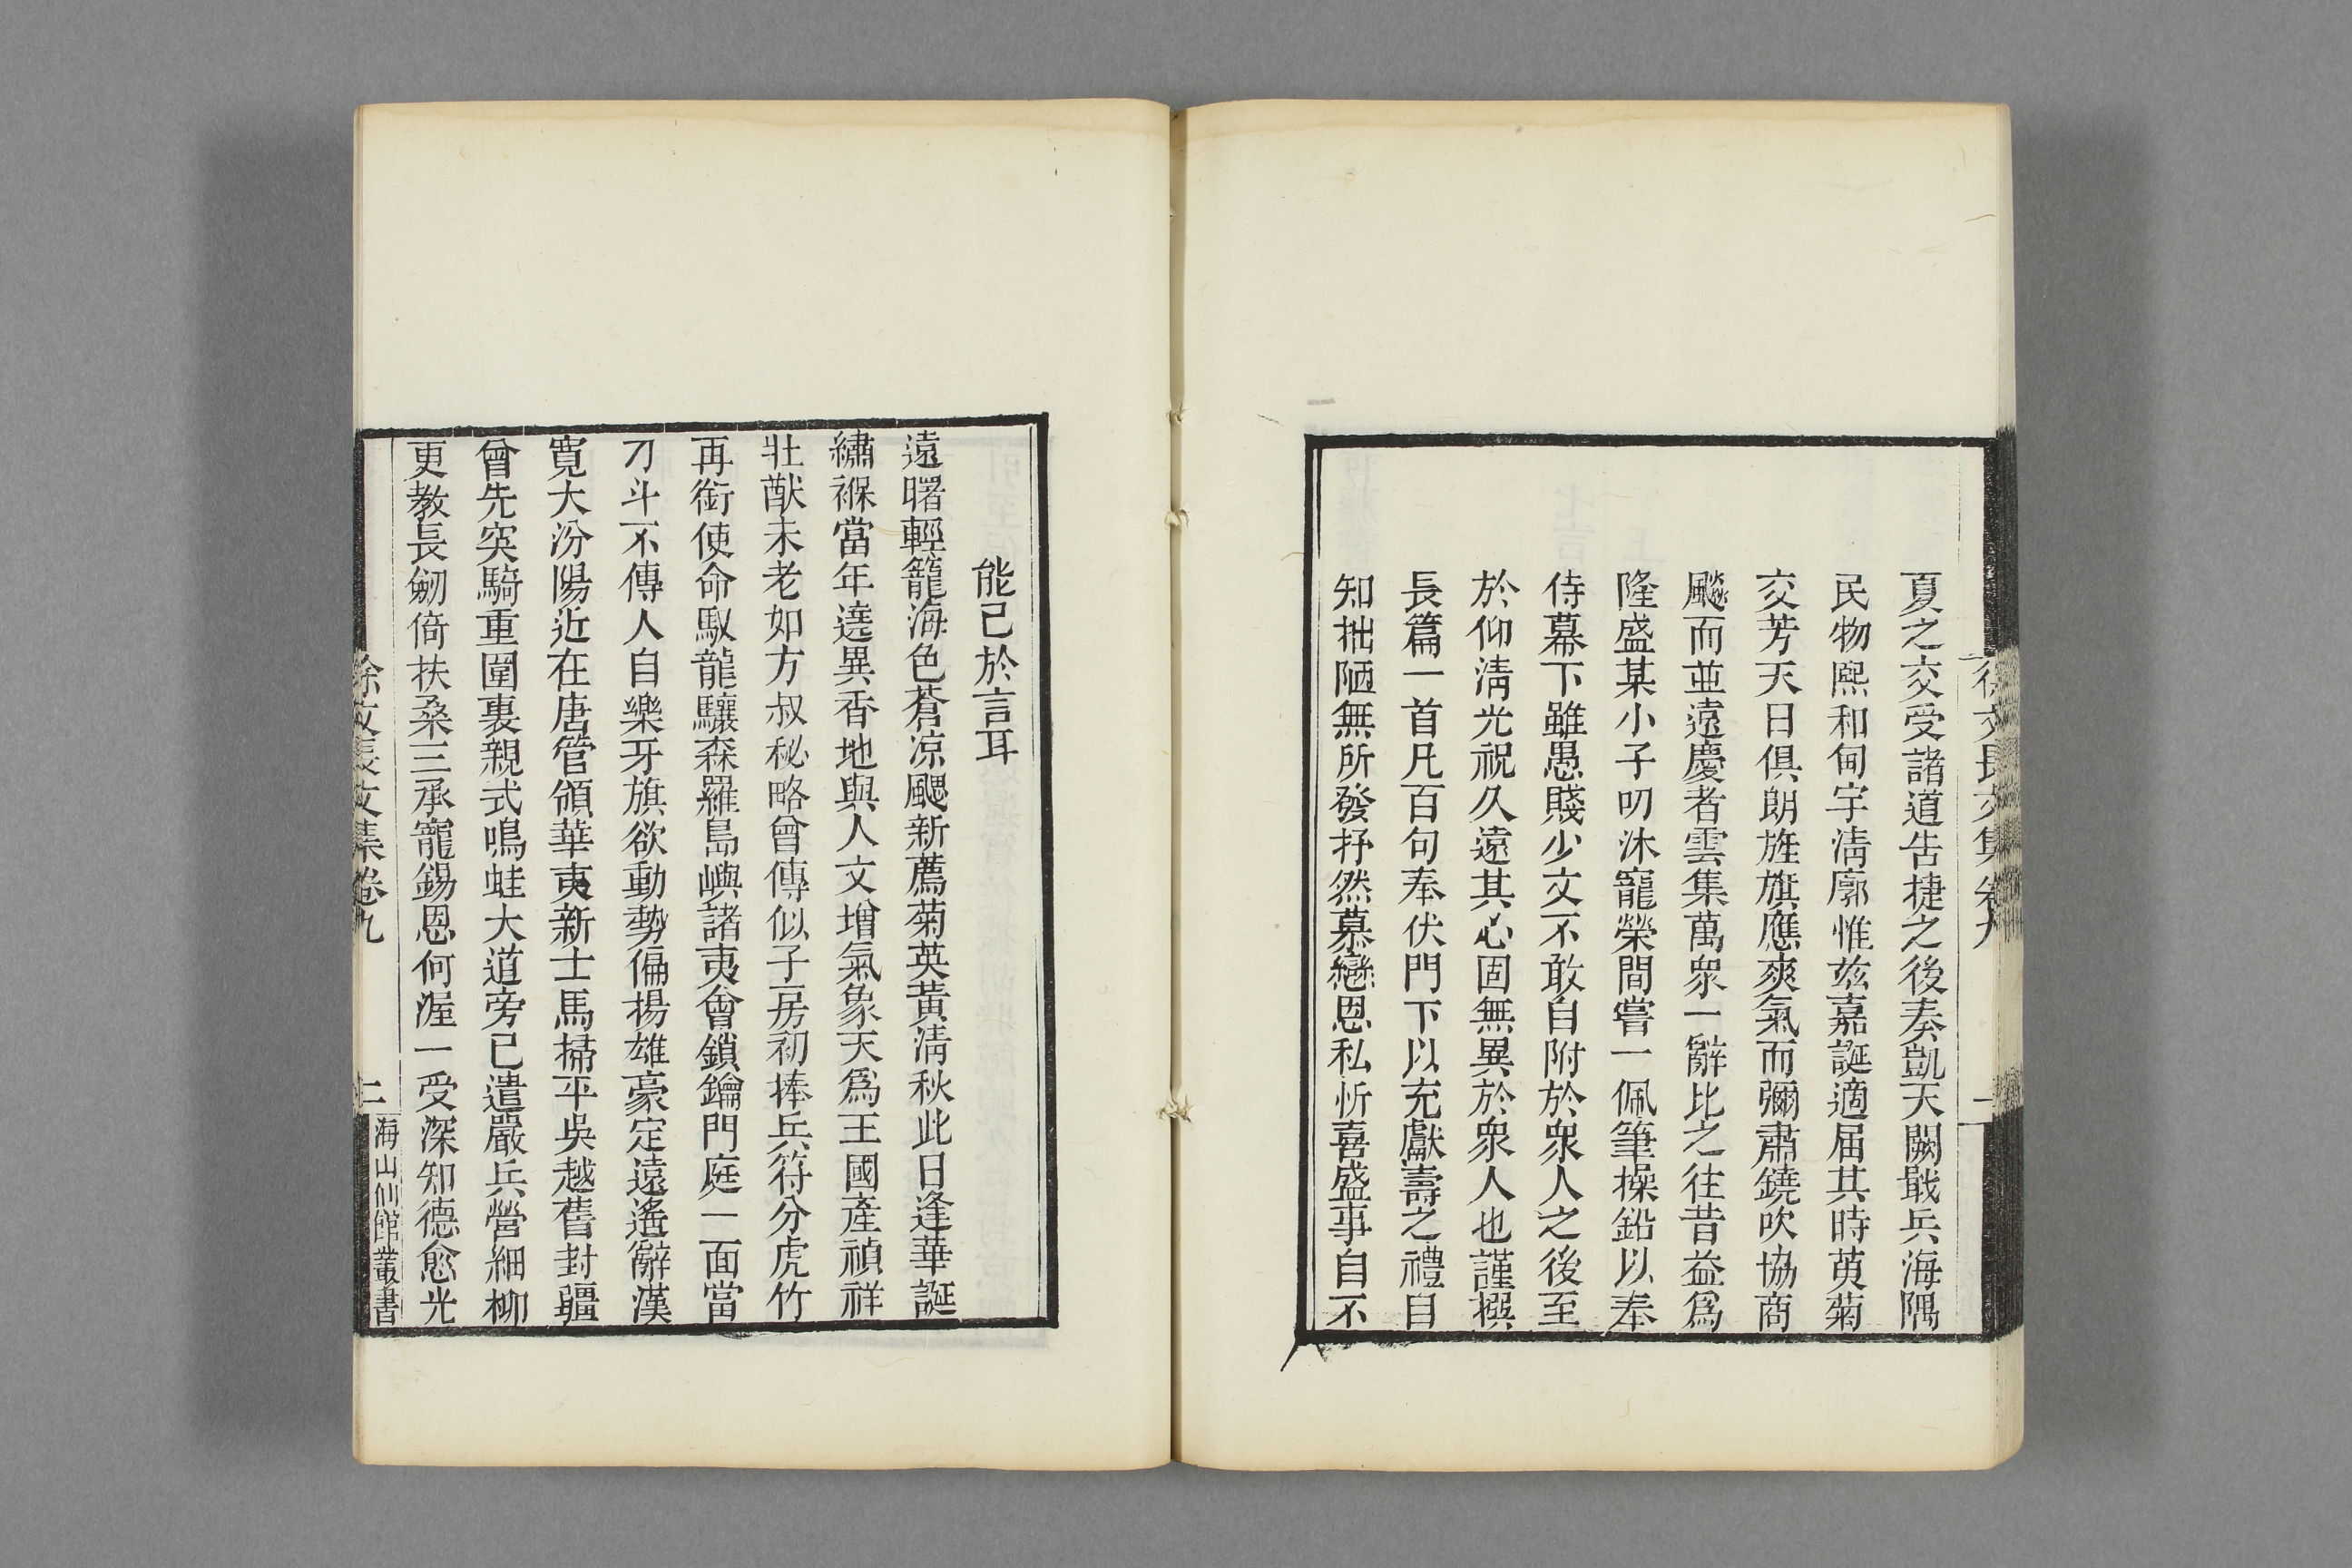 徐文長文集卷九
一
夏之交受諸道吿捷之後奏凱天闕戢兵海隅
民物熙和甸宇淸廓惟玆嘉誕適届其時萸菊
交芳天日俱朗旌旗應爽氣而彌肅鐃吹協商
飈而並遠慶者雲集萬衆一辭比之往昔益爲
隆盛某小子叨沐寵榮間嘗一佩筆操鉛以奉
侍幕下雖愚賤少文不敢自附於衆人之後至
於仰淸光祝久遠其心固無異於衆人也謹撰
長篇一首凡百句奉伏門下以充獻壽之禮自
知拙陋無所發抒然慕戀恩私忻喜盛事自不
能已於言耳
遠曙輕籠海色蒼凉颸新薦菊英黃淸秋此日逢華誕
繡褓當年遶異香地與人文增氣象天爲王國產禎祥
壯猷未老如方叔秘略曾傳似子房初捧兵符分虎竹
再銜使命馭龍驤森羅島嶼諸夷會鎖鑰門庭一面當
刁斗不傳人自樂牙旗欲動勢偏揚雄豪定遠遙辭漢
寬大汾陽近在唐管領華夷新士馬掃平吳越舊封疆
曾先突騎重圍裏親式鳴蛙大道旁已遣嚴兵營細柳
更教長劒倚扶桑三承寵錫恩何渥一受深知德愈光
徐文長文集卷九
二
海山仙館叢書